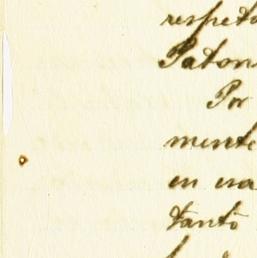 respeto
Paton
Por
mente
en esa
tanto